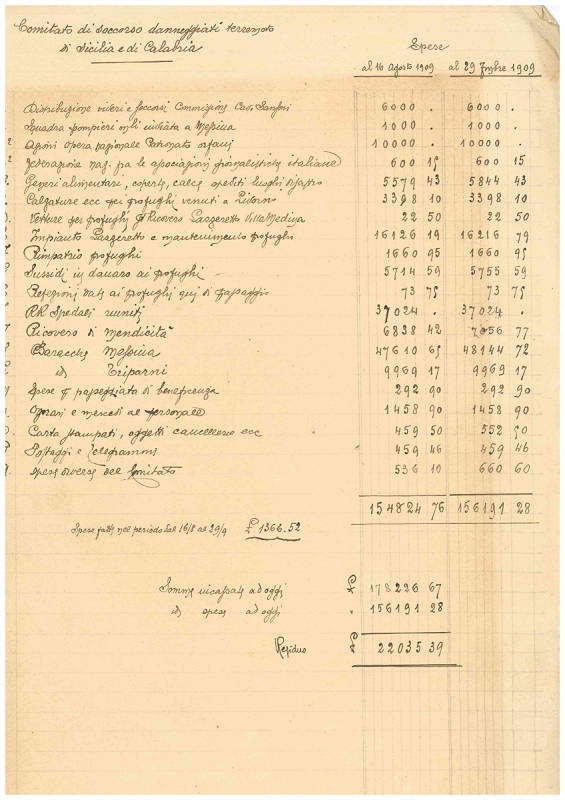 Comitato di soccorso danneggiati terremoto
di Sicilia e di Calabria
Spese
al 16 Agosto 1909 al 29 7mbre 1909
Distribuzione viveri e soccorsi Commissione Cav. 6000 . 6000 .
Squadra pompieri inviata a Messina 1000 . 1000 .
Opera nazionale Patronato orfani 10000 . 10000 .
Federazione naz. fra le associazioni giornalistiche italiane 600 15 600 15
Generi alimentari, coperte, calce spediti luoghi disastro 5579 43 5844 43
Calzature ecc pei profughi venuti a Livorno 3398 10 3398 10
Vetture per profughi Ricovero Lazzeretto Villa Medica 22 50 22 50
Impianto Lazzeretto e mantenimento profughi 16126 19 16216 79
Rimpatrio profughi 1660 95 1660 95
Sussidi in danaro ai profughi 5714 59 5755 59
Refezioni date ai profughi qui di passaggio 73 75 73 75
RR Spedali riuniti 37024 . 37024 .
Ricovero di Mendicità 6838 42 7056 77
Baracche Messina 47610 65 48144 72
id Triparni 9969 17 9969 17
Spese passeggiata di beneficenza 292 90 292 90
Operai e mercedi al personale 1458 90 1458 90
Carta stampati, oggetti cancelleria ecc 459 50 552 50
Postaggi e telegrammi 459 46 459 46
Spese diverse del Comitato 536 10 660 60
154824 76 156191 28
Spese fatte nel periodo dal 16/8 al 29/9 £ 1366.52
Somme incassate ad oggi £ 178226 67
id spese ad oggi " 156191 28
Residuo £ 22035 39